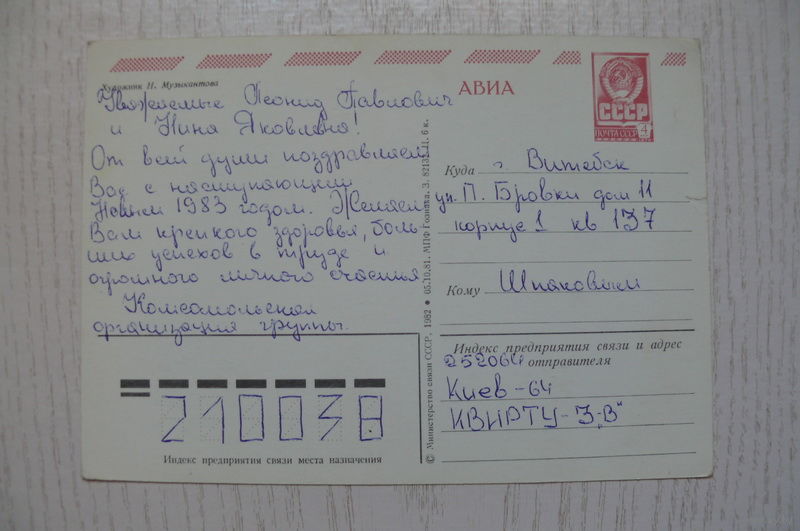 Художник Н. Музыкантова
АВИА
СССР
ПОЧТА СССР
Уважаемые Леонид Павлович
и Нина Яковлевна!
От всей души поздравляем
Вас с наступающим
Новым 1983 годом. Желаем
Вам крепкого здоровья, боль-
ших успехов в труде и
огромного личного счастья
Комсомольская
организация группы.
© Министерство связи СССР. 1982 ● 05.10.81. МПФ Гознака. З. 82132. Ц. 6 к.
Куда г. Витебск
ул. П. Бровки дом 11
корпус 1 кв 137
Кому Шпаковым
Индекс предприятия связи и адрес
отправителя
252064
Киев-64
КВИРТУ-3„В"
210038
Индекс предприятия связи места назначения